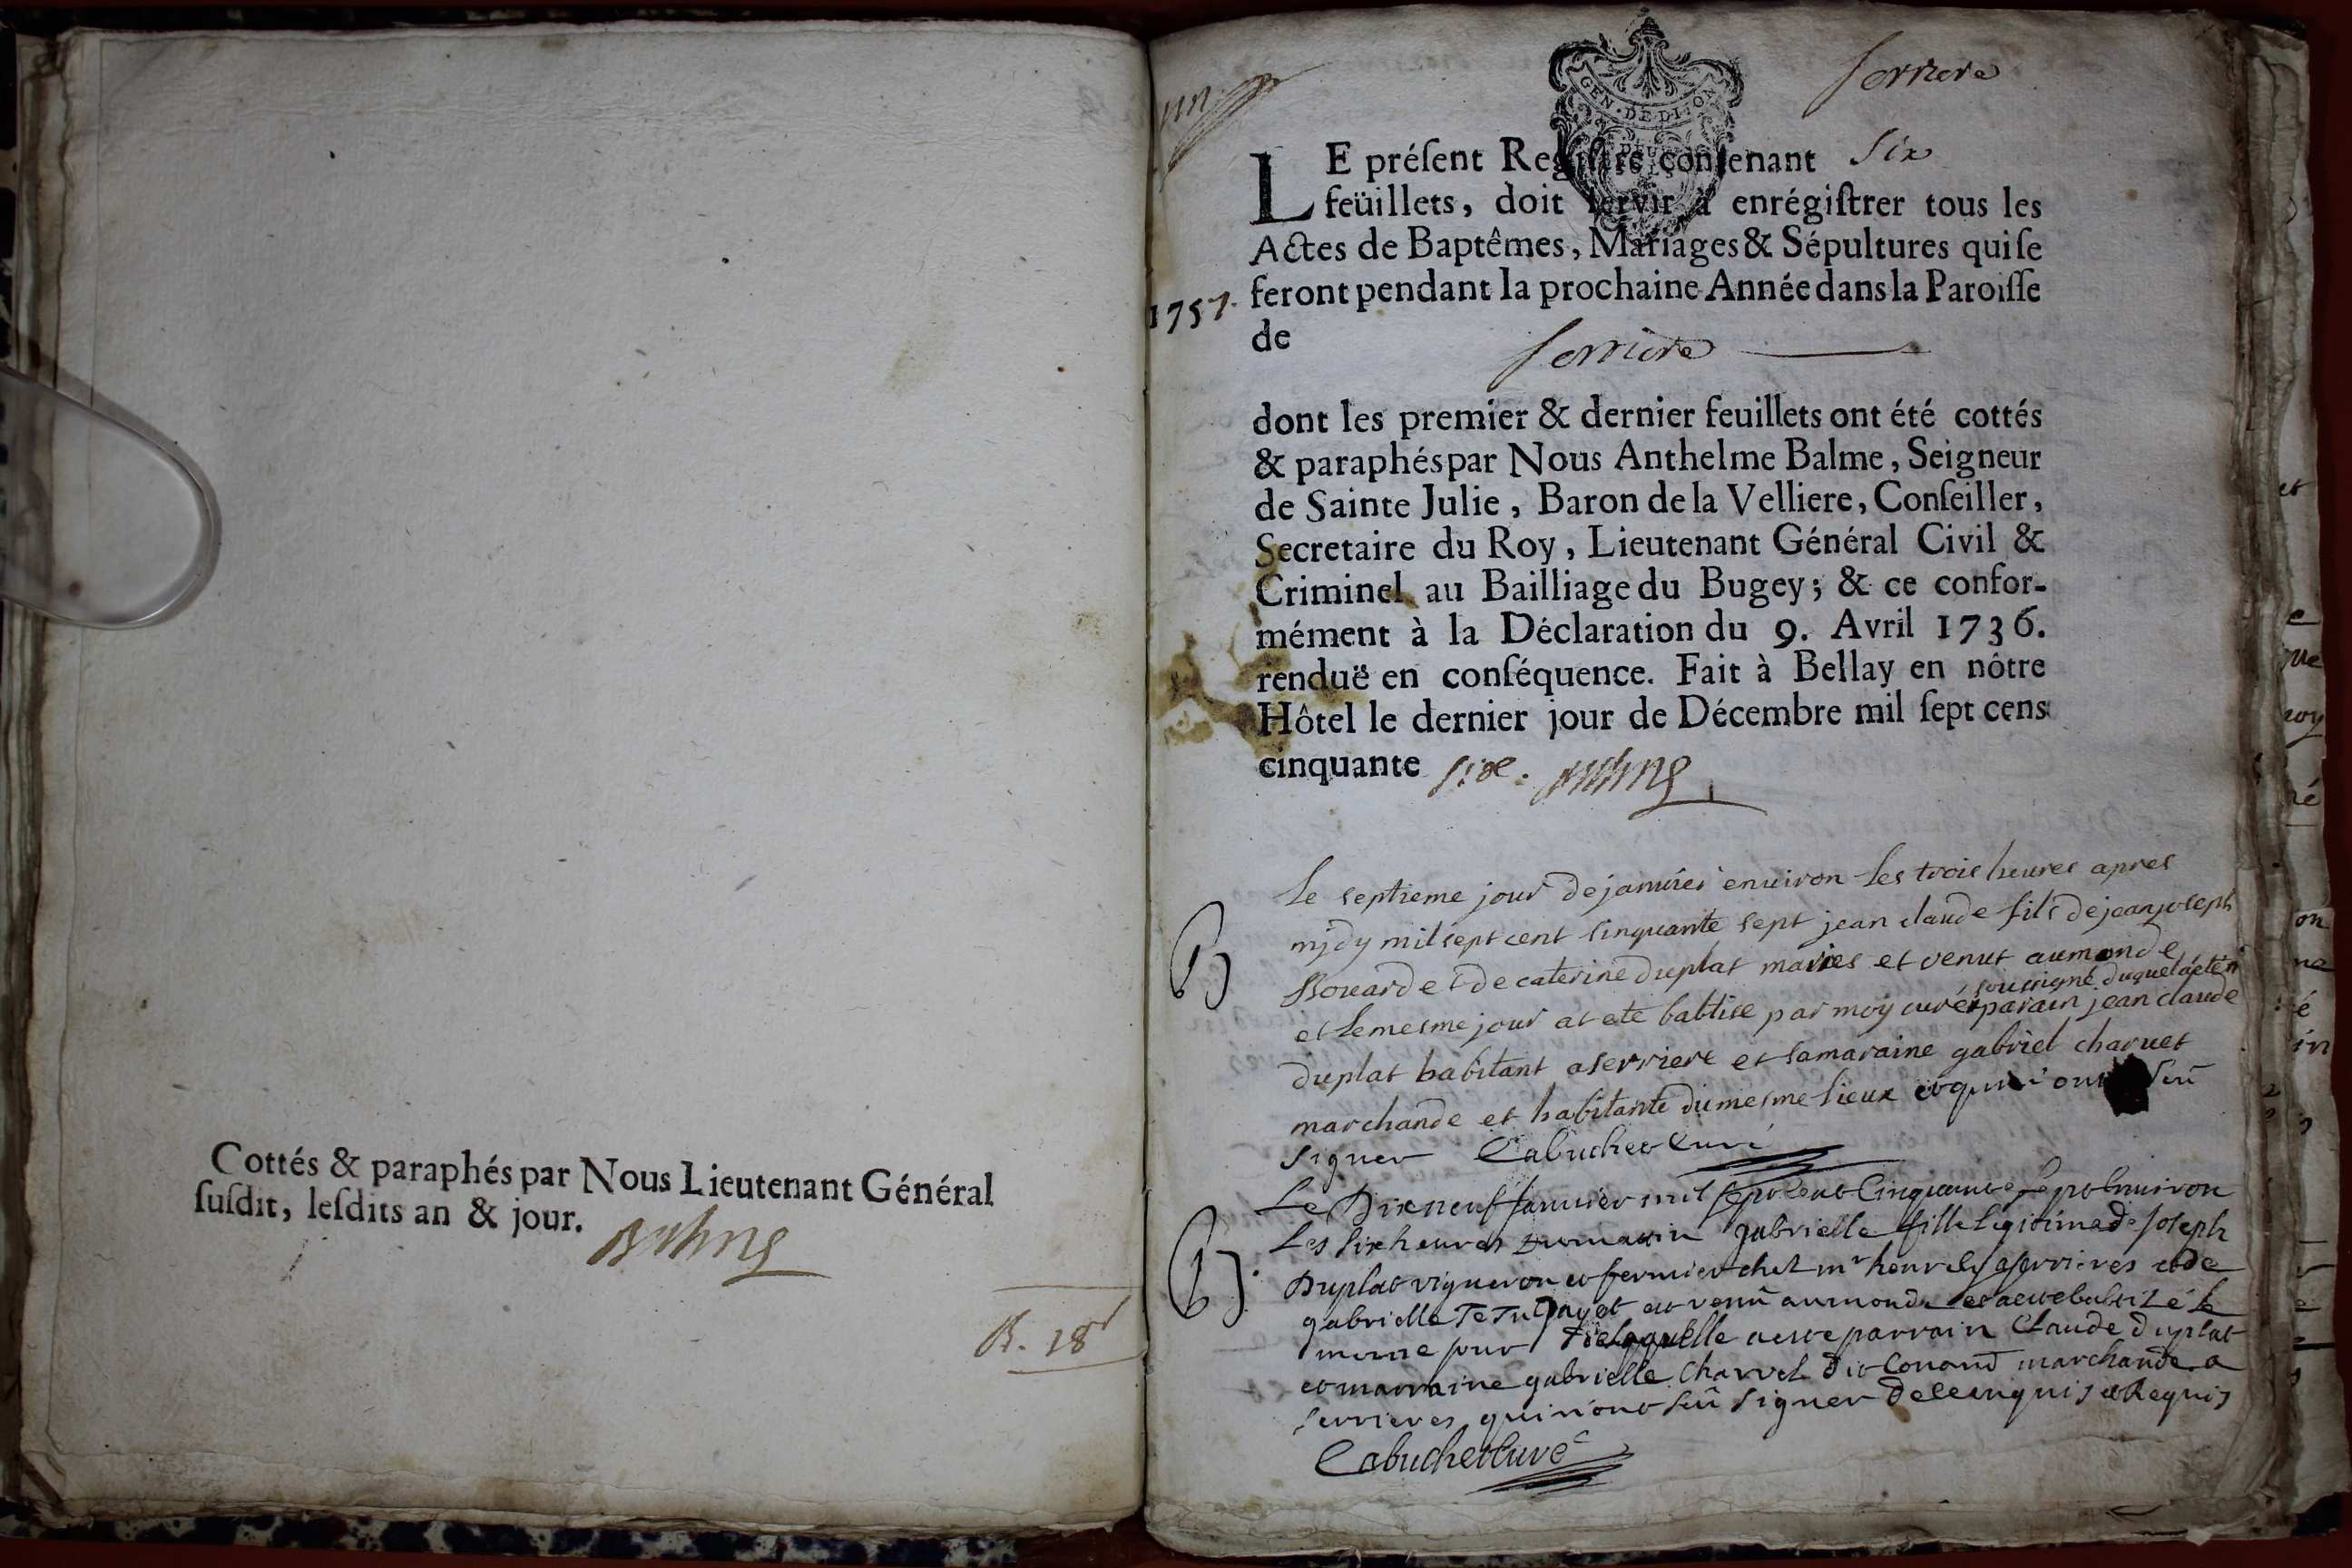 Cottés & paraphés par Nous Lieutenant Général
suſdit, leſdits an & jour.
B. 18
un
GEN · DE DIJON
serriere
LE préſent Regiſtre contenant six
feüillets, doit ſervir à enrégiſtrer tous les
Actes de Baptêmes, Mariages & Sépultures qui ſe
feront pendant la prochaine Année dans la Paroiſſe
1757.
de serriere
dont les premier & dernier feuillets ont été cottés
& paraphés par Nous Anthelme Balme, Seigneur
de Sainte Julie, Baron de la Velliere, Conſeiller,
Secretaire du Roy, Lieutenant Général Civil &
Criminel au Bailliage du Bugey; & ce confor-
mément à la Déclaration du 9. Avril 1736.
renduë en conſéquence. Fait à Bellay en nôtre
Hôtel le dernier jour de Décembre mil ſept cens
cinquante six.
Le septieme jour de janvier environ les trois heures apres
mjdy mil sept cent sinquante sept jean claude fils de jean joseph
Bouard et de caterine duplat maries et venut au monde
et le mesme jour at ete babtise par moy curé soussigné duquel a été parain jean claude
duplat habitant a serriere et sa maraine gabriel charvet
marchande et habitante du mesme lieux et qui n'ont seü
signer Cabuchet Curé
Le Dix neuf Janvier mil sept cent Cinquante sept Environ
Les six heures du matin gabrielle fille legitime de Joseph
Duplat vigneron et fermier chet mr a serrieres et de
gabrielle est venü au monde et a ete babtizé le
meme jour de laquelle a ete parrain Claude duplat
et marraine gabrielle Charvet dit Conand marchande a
serrieres, qui n'ont seü signer de ce enquis et Requis
Cabuchet Curé